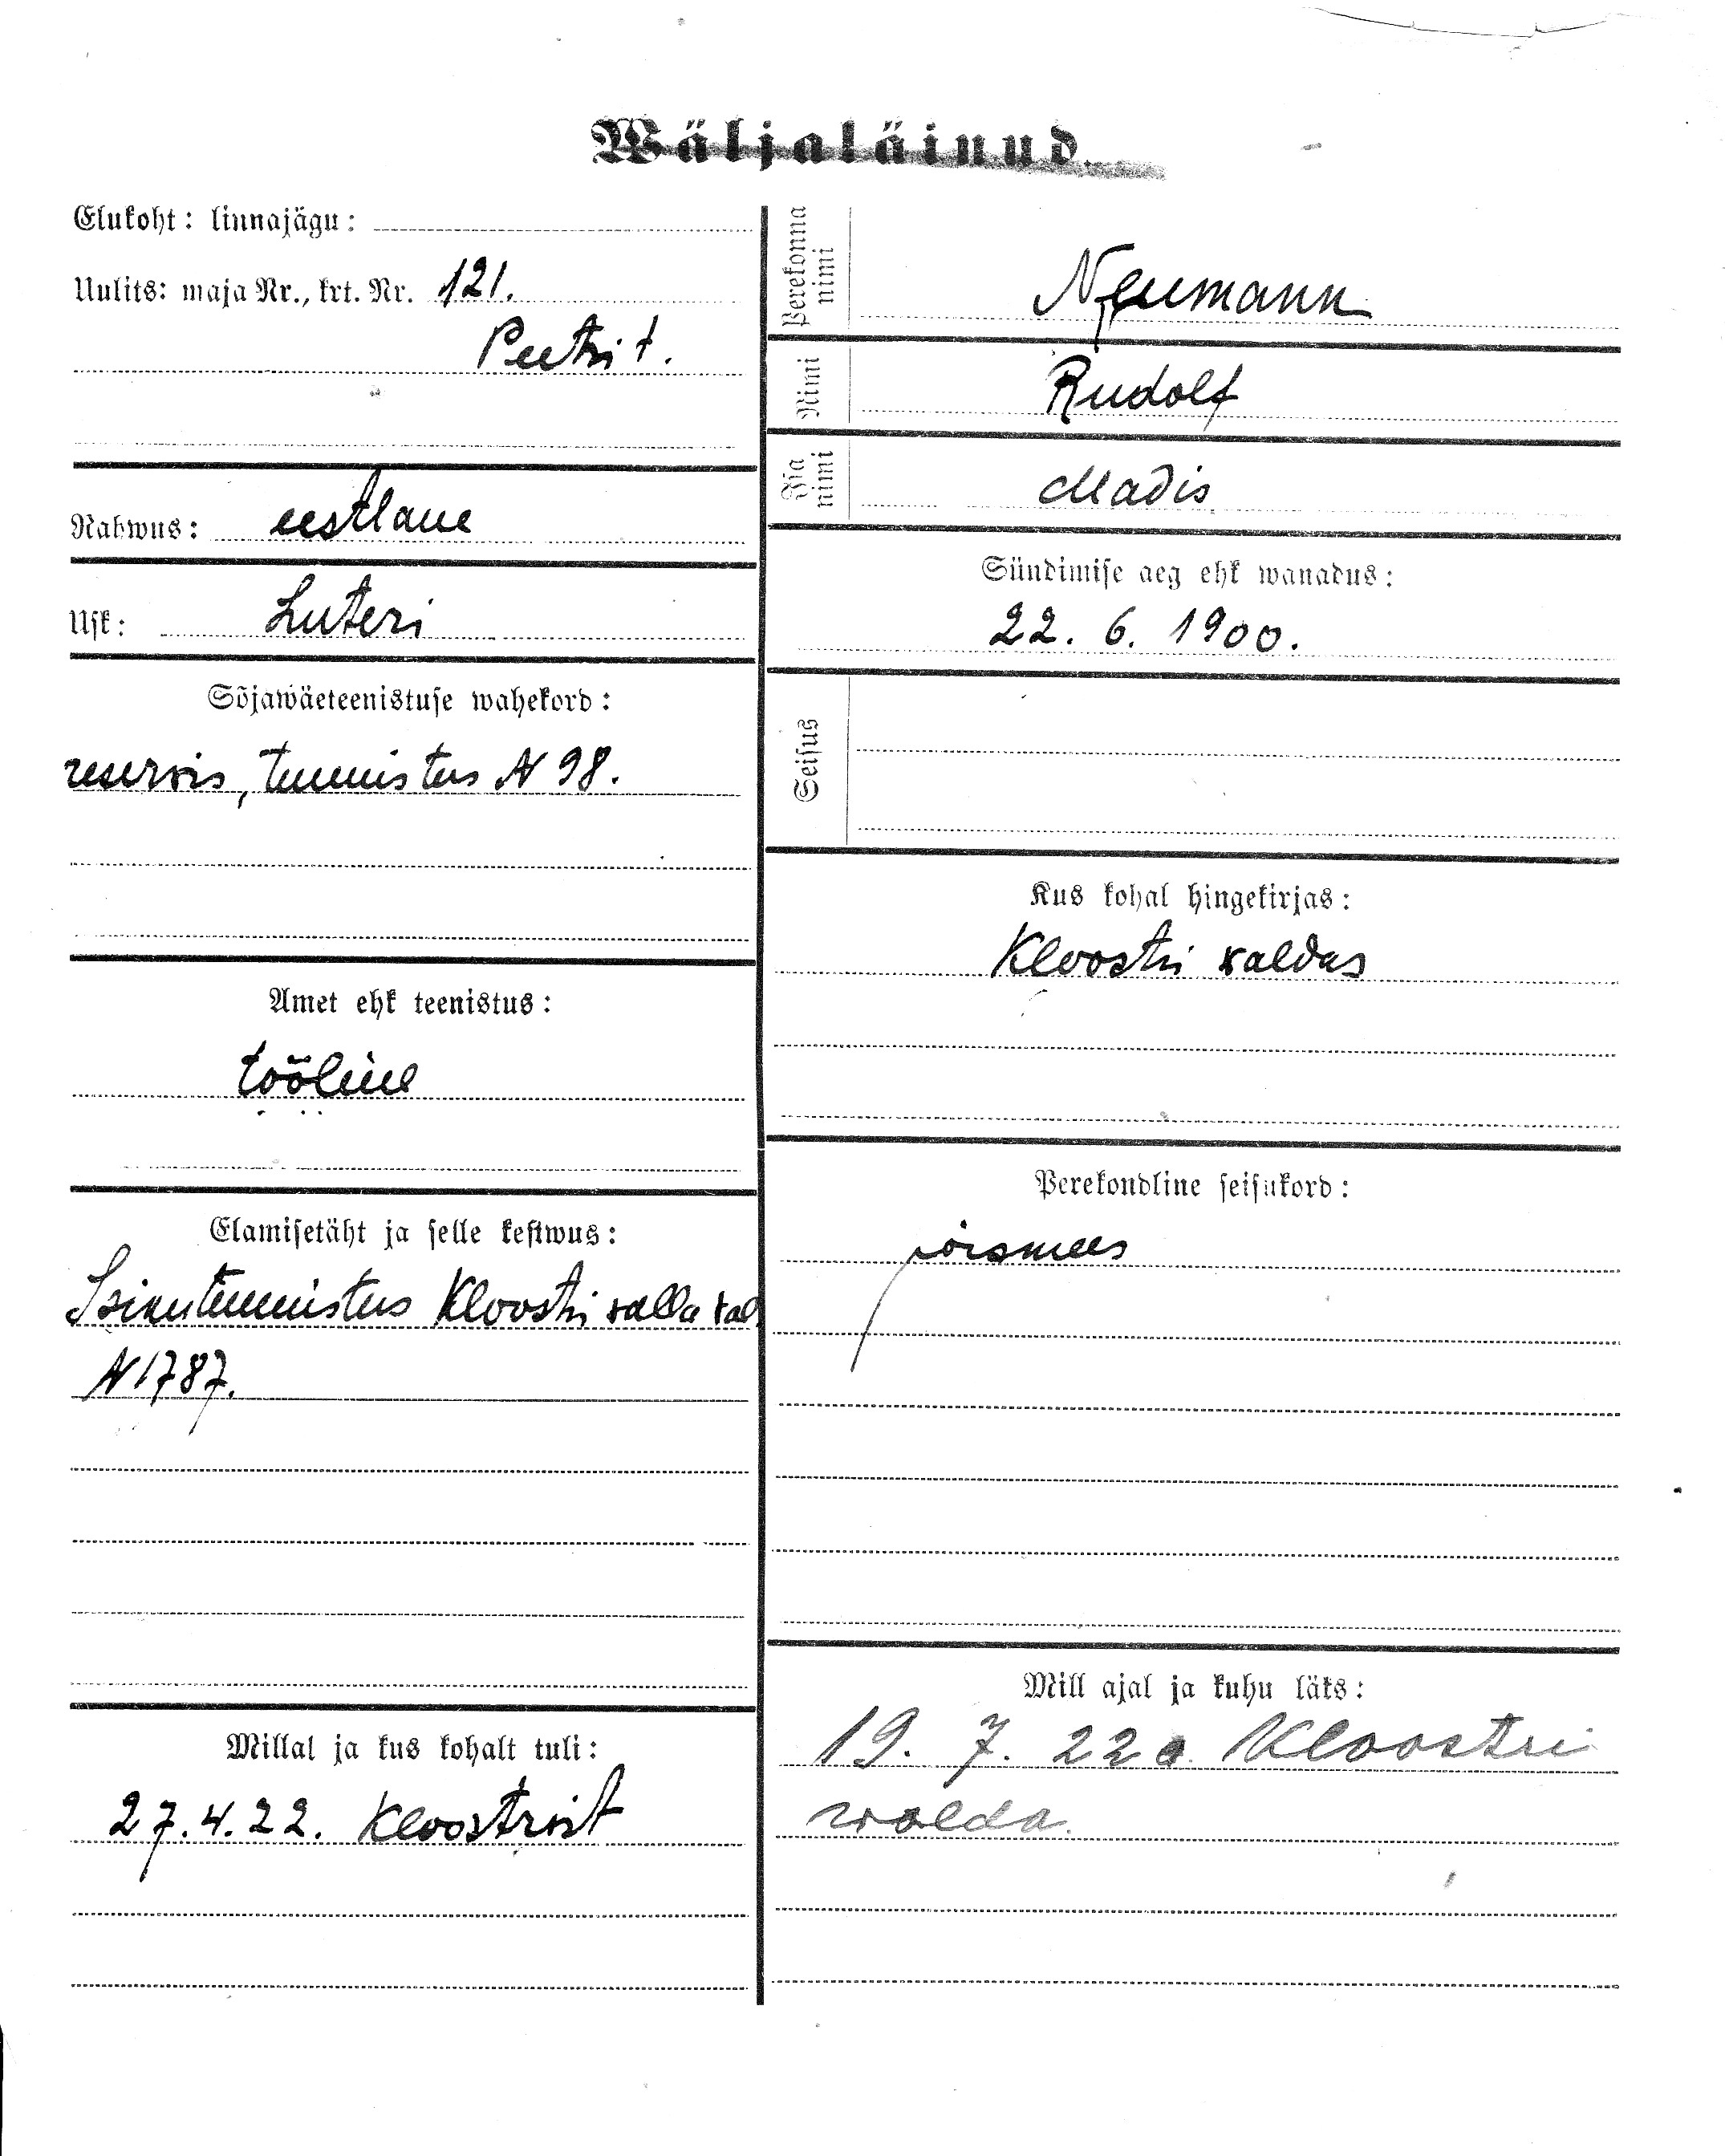 Wäljaläinud.
Elukoht: linnajägu:
Uulits: maja Nr., krt. Nr. 121.
Peetri t.
Rahwus: eestlane
Usk: Luteri
Sõjawäeteenistuse wahekord:
reservis, tunnistus N 98.
Amet ehk teenistus:
tööline
Elamisetäht ja selle kestwus:
Isikutunnistus Kloostri walla wal.
N 1787.
Millal ja kus kohalt tuli:
27.4.22. Kloostrist
Perekonna nimi
Neumann
Nimi
Rudolf
Isa nimi
Madis
Sündimise aeg ehk wanadus:
22. 6. 1900.
Seisus
Kus kohal hingekirjas:
Kloostri waldas
Perekondline seisukord:
poismees
Mill ajal ja kuhu läks:
19. 7. 22 a. Kloostri
walda.